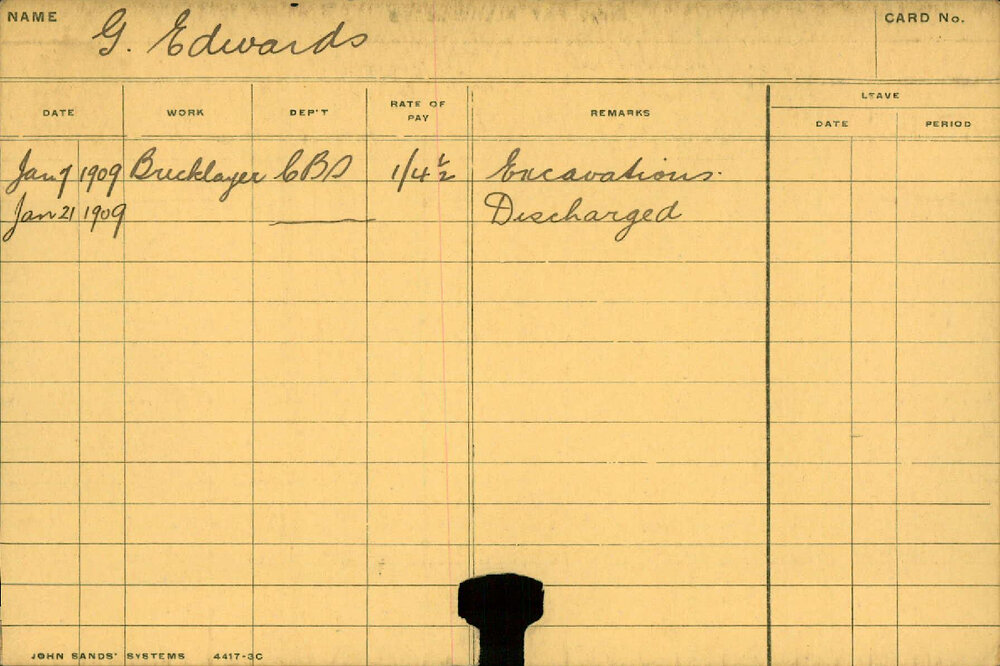 NAME G. Edwards CARD No.
DATE WORK DEP'T RATE OF PAY REMARKS LEAVE
DATE PERIOD
Jan 7 1909 Bricklayer CBS 1/4½ Excavations.
Jan 21 1909 Discharged
JOHN SANDS' SYSTEMS 4417-3C